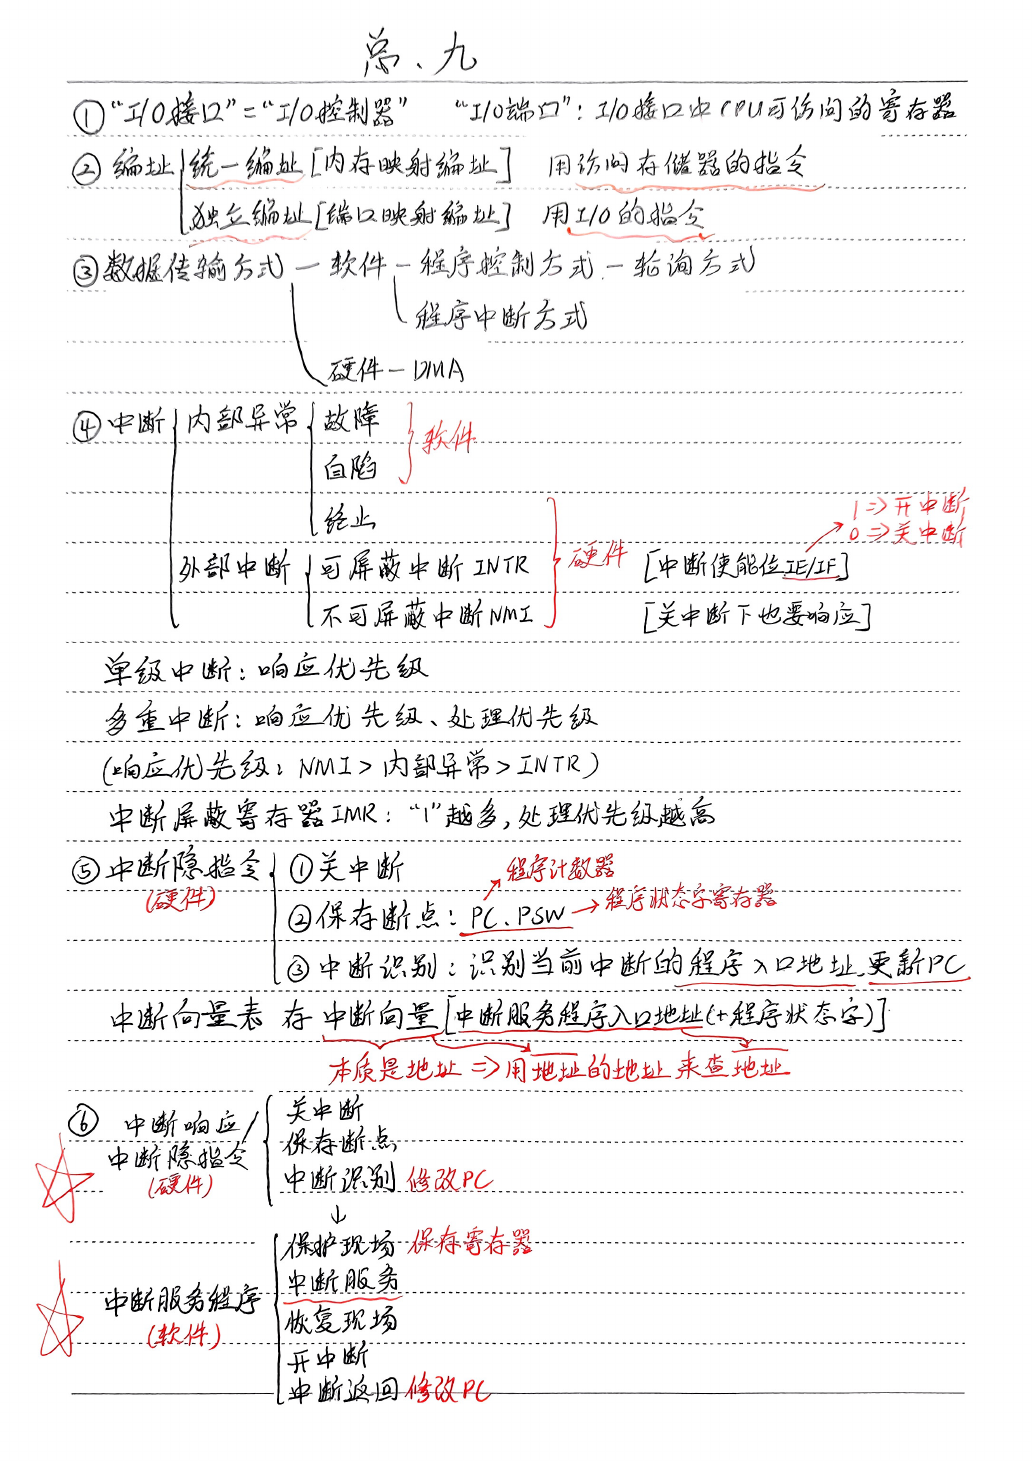 总、九
①“I/O接口”=“I/O控制器” “I/O端口”: I/O接口中CPU可访问的寄存器
②编址 统一编址[内存映射编址] 用访问存储器的指令
独立编址[端口映射编址] 用I/O的指令
③数据传输方式—软件—程序控制方式—轮询方式
程序中断方式
硬件—DMA
④中断 内部异常 故障
软件
自陷
终止
1⇒开中断
0⇒关中断
外部中断 可屏蔽中断INTR 硬件 [中断使能位IE/IF]
不可屏蔽中断NMI [关中断下也要响应]
单级中断:响应优先级
多重中断:响应优先级、处理优先级
(响应优先级: NMI>内部异常>INTR)
中断屏蔽寄存器IMR: “1”越多,处理优先级越高
⑤中断隐指令 ①关中断 程序计数器
(硬件) ②保存断点: PC、PSW→程序状态字寄存器
③中断识别: 识别当前中断的程序入口地址,更新PC
中断向量表 存 中断向量[中断服务程序入口地址(+程序状态字)]
本质是地址⇒用地址的地址来查地址
⑥ 中断响应/ 关中断
中断隐指令 保存断点
(硬件) 中断识别 修改PC
↓
保护现场 保存寄存器
中断服务程序 中断服务
(软件) 恢复现场
开中断
中断返回 修改PC